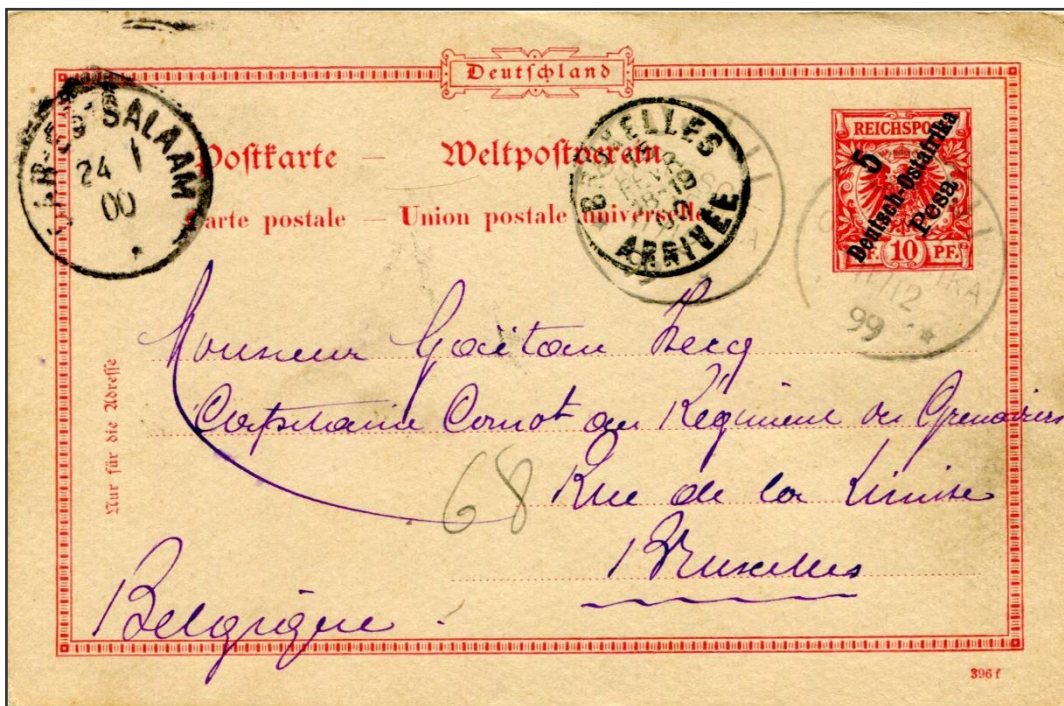 Deutschland
Postkarte — Weltpostverein
Carte postale — Union postale universelle
DAR-ES-SALAAM
24 1
00
BRUXELLES
ARRIVÉE
REICHSPOST
5
Deutsch-Ostafrika
Pesa
PF. 10 PF.
12
99
Nur für die Adresse
Monsieur Gaëtan
Capitaine Comt au Régiment des Grenadiers
68
Rue de la
Bruxelles
Belgique
396 f